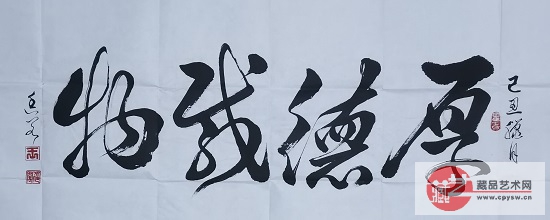 己丑
厚德载物
藏品艺术网
www.cpysw.cn